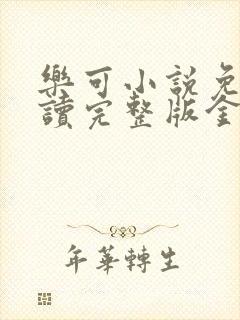 樂可小說免
讀完整版全
年華轉生